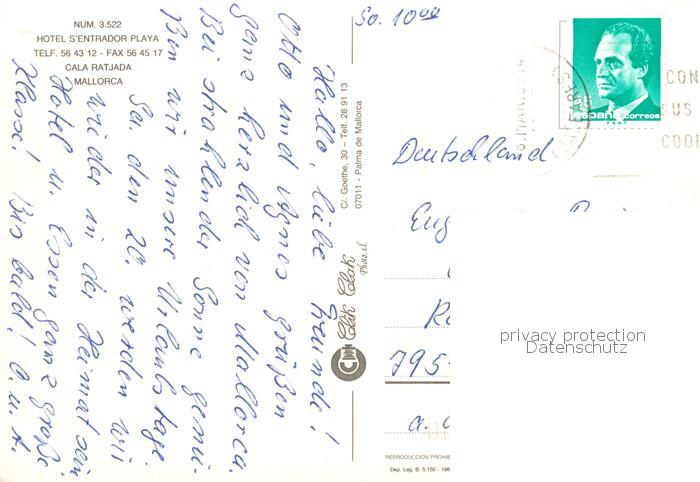 NUM. 3.522
HOTEL S'ENTRADOR PLAYA
TELF. 56 43 12 - FAX 56 45 17
CALA RATJADA
MALLORCA
Hallo, liebe Freunde!
Otto und Agnes grüßen
ganz herzlich von Mallorca.
Bei strahlender Sonne genie-
ßen wir unsere Urlaubstage.
Sa. den 20. werden wir
wieder in der Heimat sein
Hotel u. Essen ganz große
Klasse! Bis bald! O. u. A.
C/. Goethe, 30 – Telf. 28 91 13
07011 - Palma de Mallorca
Clak Clak
Photo, s.l.
So. 10ºº
España correos
BALEARES
CON
SUS
CODI
Deutschland
Eug
795
a. d
privacy protection
Datenschutz
REPRODUCCION PROHIB
Dep. Leg. B. 5.150 - 198